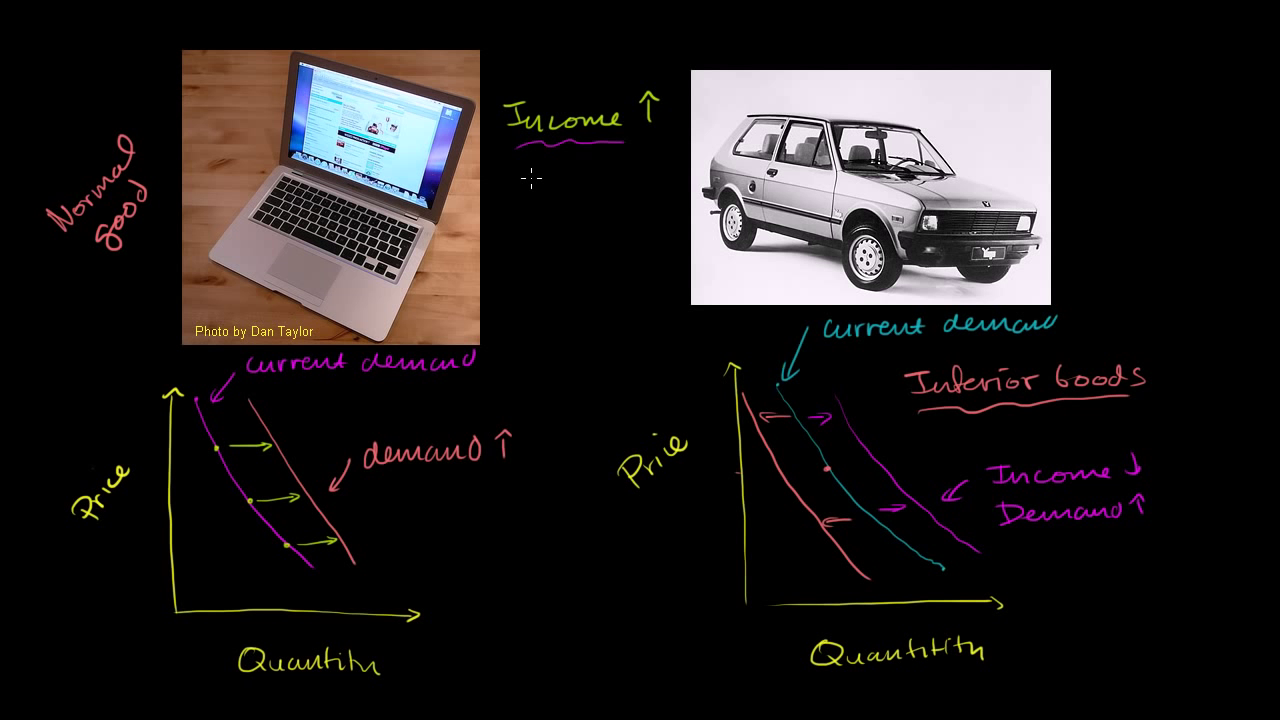 Income ↑
Normal
good
Photo by Dan Taylor
Yugo
current demand
demand ↑
Price
Quantity
current demand
Inferior Goods
Price
Income ↓
Demand ↑
Quantitity